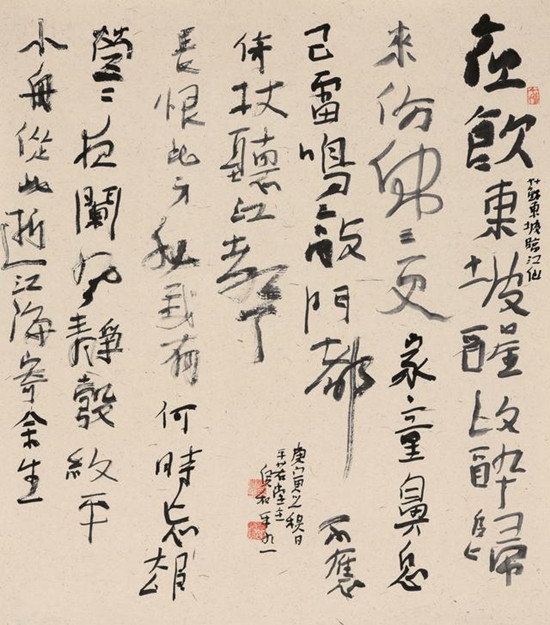 夜飲東坡醒復醉歸
蘇東坡臨江仙
來彷彿三更家童鼻息
已雷鳴敲門都不應
倚杖聽江聲
長恨此身非我有何時忘却
營〻夜闌風靜縠紋平
小舟從此逝江海寄余生
庚寅之秋日